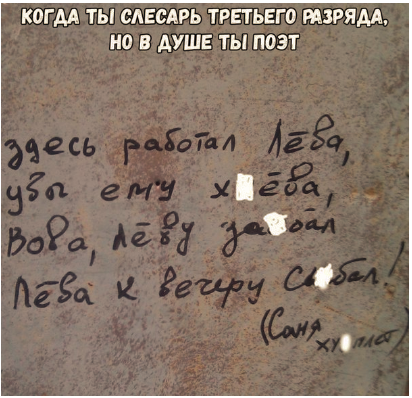 КОГДА ТЫ СЛЕСАРЬ ТРЕТЬЕГО РАЗРЯДА,
НО В ДУШЕ ТЫ ПОЭТ
здесь работал Лёва,
увы ему х ёва,
Вова, Лёву за бал
Лёва к вечеру съ бал!
(Саня
ху плёт)